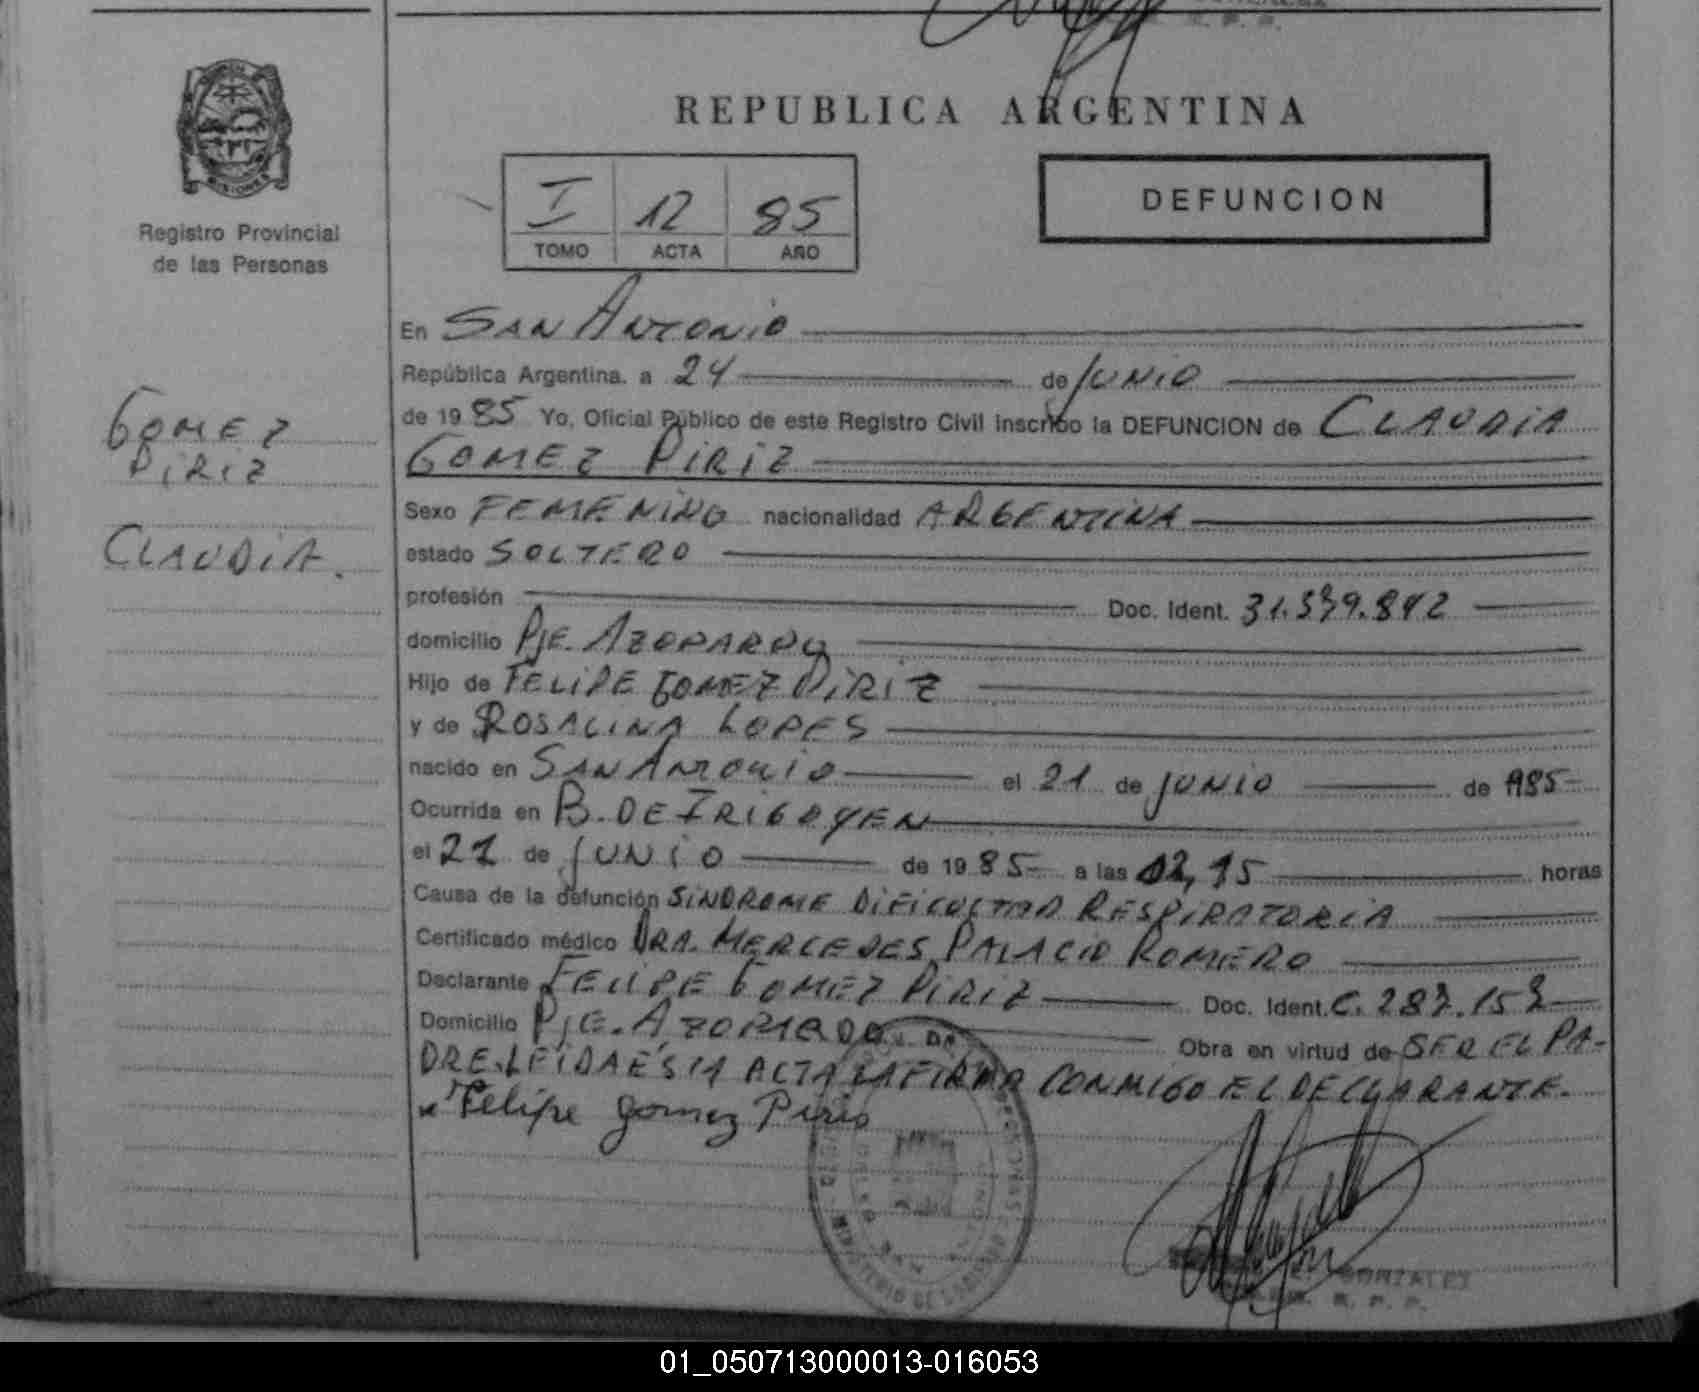 REPUBLICA ARGENTINA
MISIONES
Registro Provincial
de las Personas
I 12 85
TOMO ACTA AÑO
DEFUNCION
GOMEZ
PIRIZ
CLAUDIA.
En SAN ANTONIO
República Argentina, a 24 de JUNIO
de 1985 Yo, Oficial Público de este Registro Civil inscribo la DEFUNCION de CLAUDIA
GOMEZ PIRIZ
Sexo FEMENINO nacionalidad ARGENTINA
estado SOLTERO
profesión Doc. Ident.
domicilio PJE. AZOPARDO
Hijo de FELIPE GOMEZ PIRIZ
y de ROSALINA LOPES
nacido en SAN ANTONIO el 21 de JUNIO de 1985
Ocurrida en B. DE IRIGOYEN
el 21 de JUNIO de 1985 a las horas
Causa de la defunción SINDROME DIFICULTAD RESPIRATORIA
Certificado médico DRA. MERCEDES PALACIO ROMERO
Declarante FELIPE GOMEZ PIRIZ Doc. Ident. C. 287.157
Domicilio PJE. AZOPARDO Obra en virtud de SER EL PA-
DRE. LEIDA ÉSTA ACTA LA FIRMA CONMIGO EL DECLARANTE.
Felipe gomez Piris
GONZALEZ
01_050713000013-016053